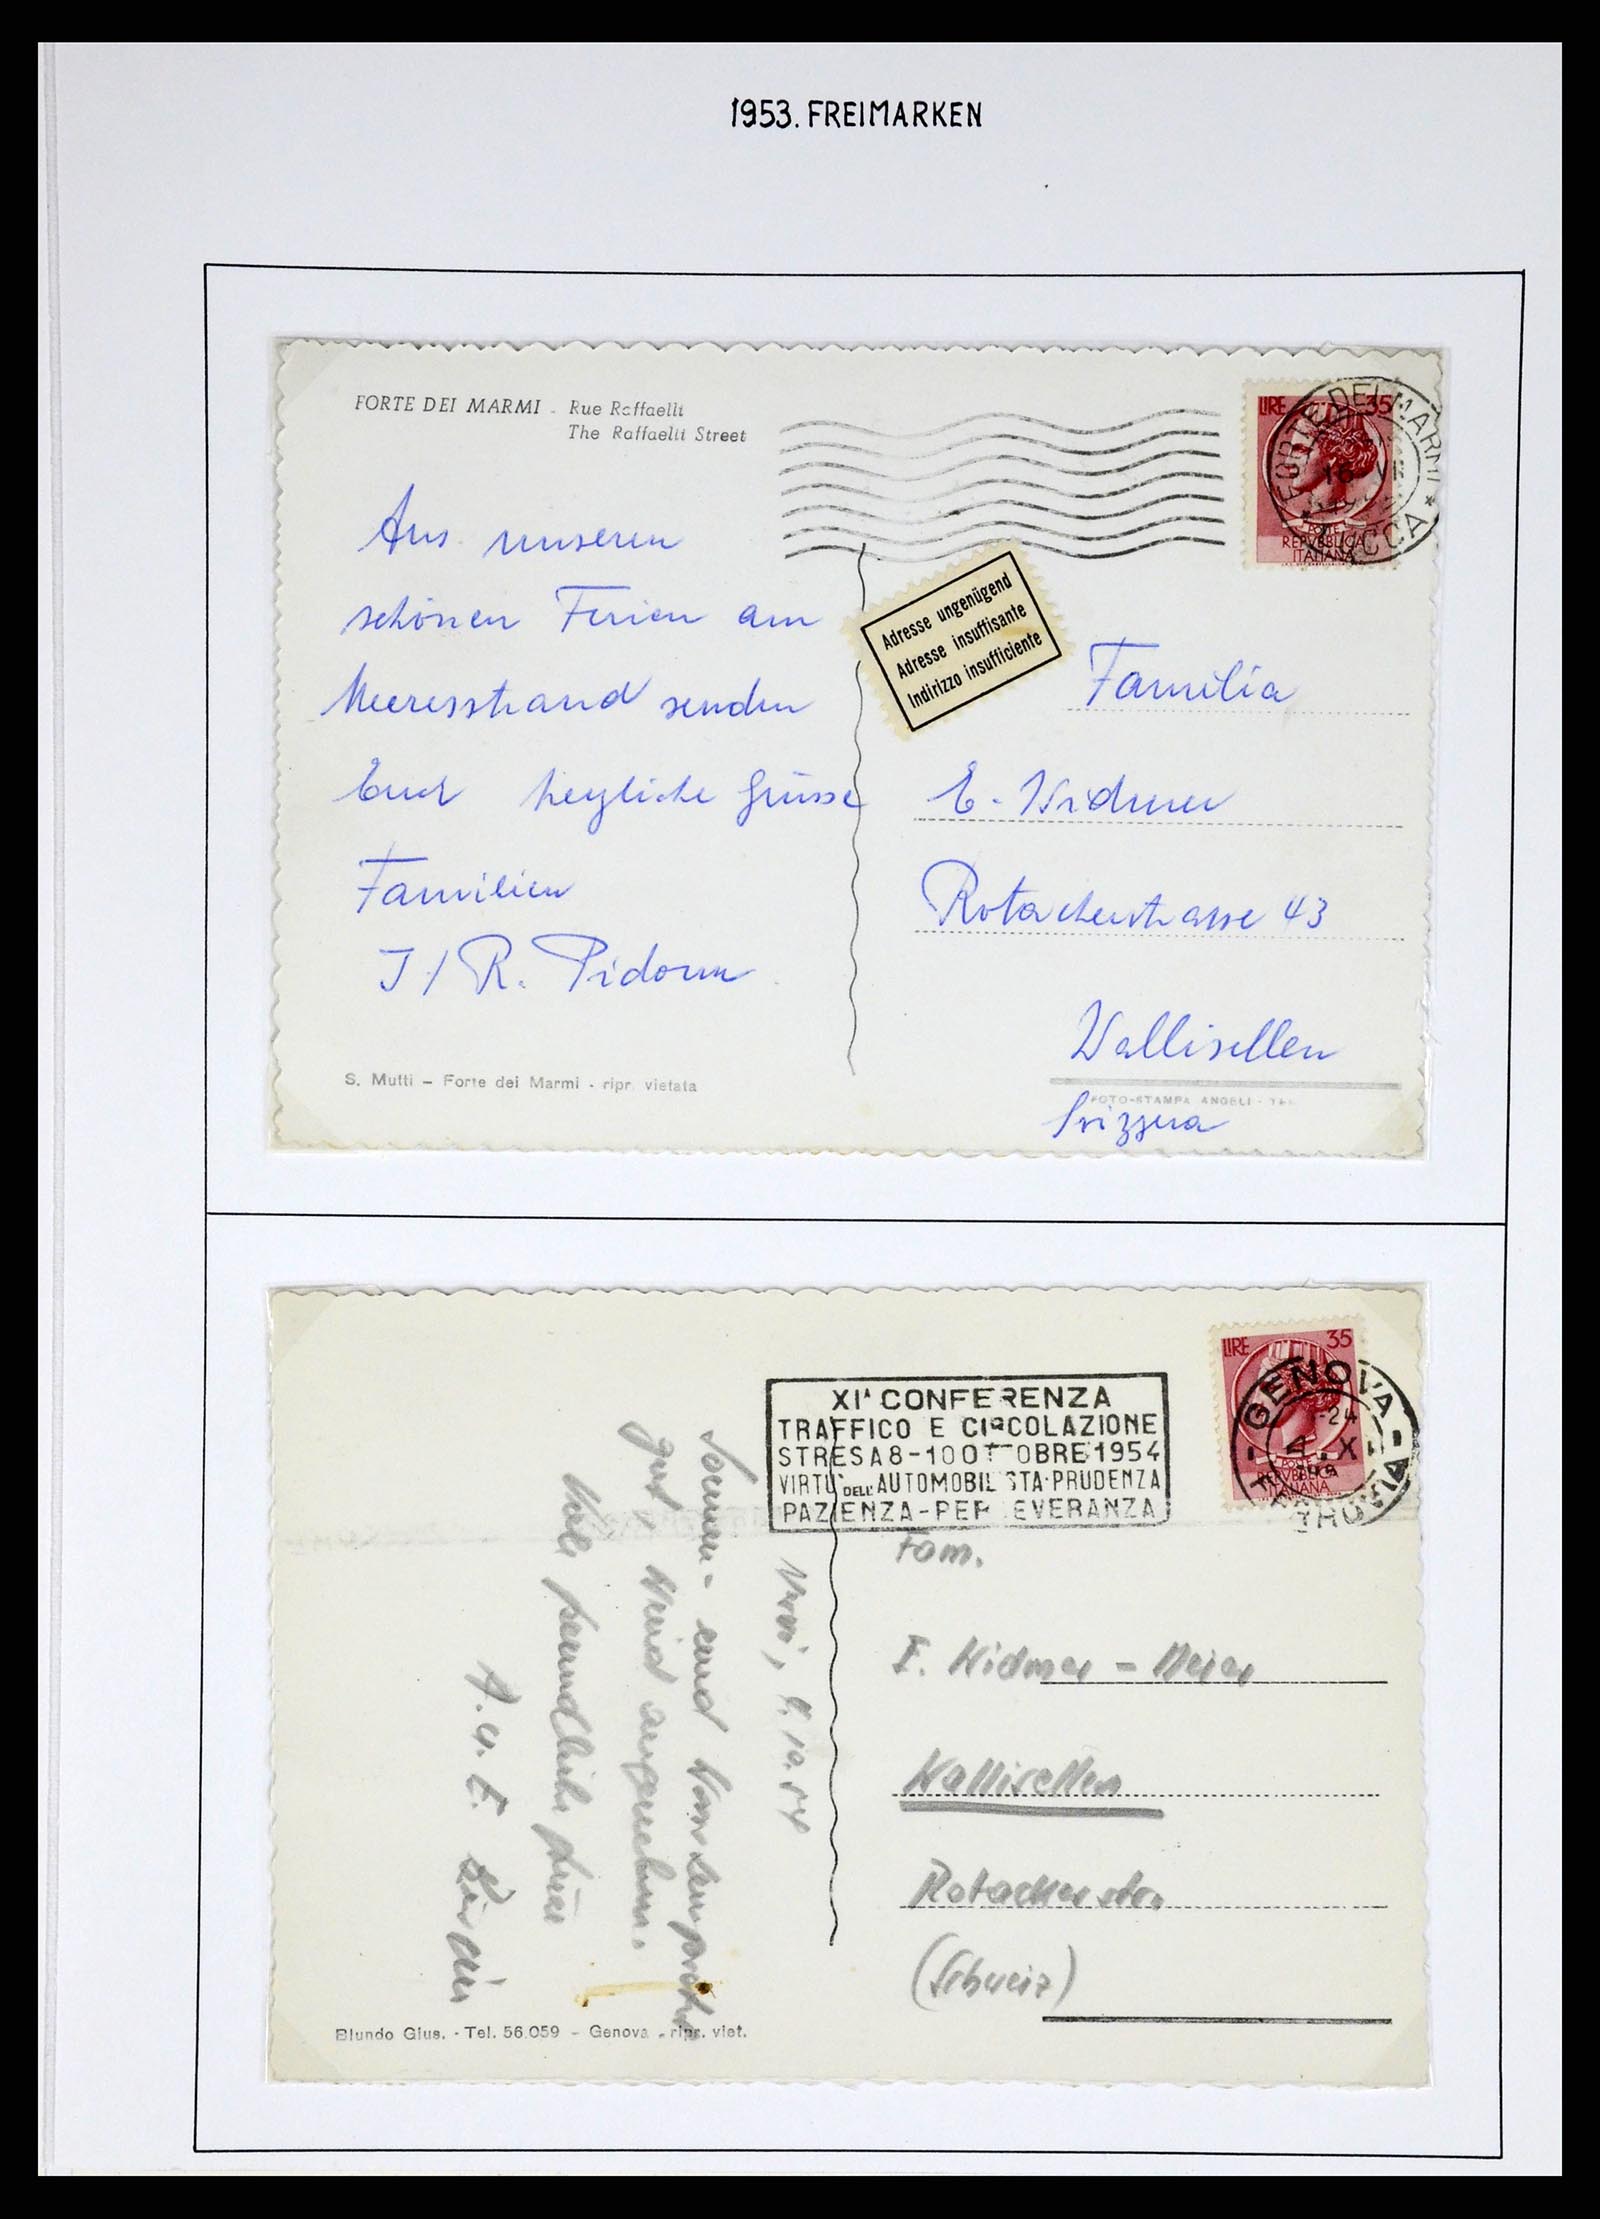 1953. FREIMARKEN
FORTE DEI MARMI - Rue Raffaelli
The Raffaelli Street
LIRE 35
POSTE
REPVBBLICA
ITALIANA
FORTE DEI MARMI
LUCCA
Adresse ungenügend
Adresse insuffisante
Indirizzo insufficiente
Aus unseren
schönen Ferien am
Meeresstrand senden
Euch herzliche Grüsse
Familien
J / R. Pidoux
S. Mutti – Forte dei Marmi - ripr. vietata
Familia
E. Widmer
Rotacherstrasse 43
Wallisellen
FOTO-STAMPA ANGELI -
Svizzera
LIRE 35
POSTE
REPVBBLICA
ITALIANA
GENOVA
FERROVIA
XIª CONFERENZA
TRAFFICO E CIRCOLAZIONE
STRESA 8-10 OTTOBRE 1954
VIRTU' DELL'AUTOMOBILISTA-PRUDENZA
PAZIENZA-PERSEVERANZA
Nervi, 4.10.54
Sonnen- und
gut, Wind angenehm.
Viele freundliche Grüsse
Fam.
E. Widmer - Meier
Wallisellen
Rotacherstr.
(Schweiz)
Blundo Gius. - Tel. 56.059 – Genova - ripr. viet.